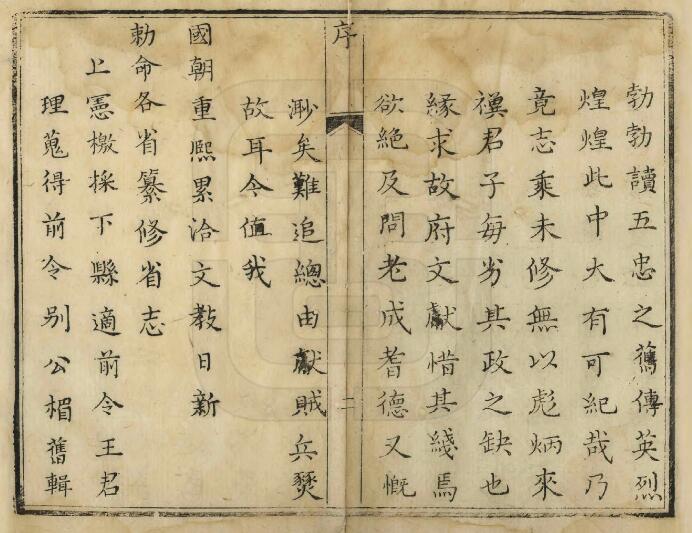 勃勃讀五忠之舊傳英烈
煌煌此中大有可紀哉乃
竟志乘未修無以彪炳來
禩君子每另其政之缺也
緣求故府文獻惜其綫焉
欲絶及問老成耆德又慨
序
二
渺矣難追總由獻賊兵燹
故耳今值我
國朝重熙累洽文教日新
勑命各省纂修省志
上憲檄採下縣適前令王君
理蒐得前令别公楣舊輯